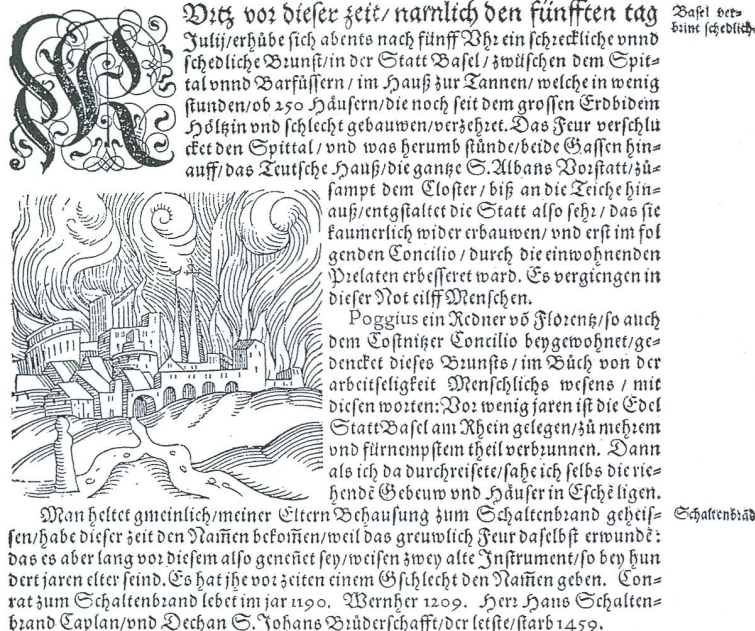 KVrtz vor dieser zeit/ namlich den fünfften tag
Julij/erhůbe sich abents nach fünff Vhr ein schreckliche vnnd
schedliche Brunst/in der Statt Basel/zwüschen dem Spit=
tal vnnd Barfüssern/im Hauß zur Tannen/welche in wenig
stunden/ob 250 Häusern/die noch seit dem grossen Erdbidem
Höltzin vnd schlecht gebauwen/verzehret. Das Feur verschlu
cket den Spittal/vnd was herumb stůnde/beide Gassen hin=
auff/das Teutsche Hauß/die gantze S. Albans Vorstatt/zů=
sampt dem Closter/biß an die Teiche hin=
auß/entgstaltet die Statt also sehr/das sie
kaumerlich wider erbauwen/vnd erst im fol
genden Concilio/durch die einwohnenden
Prelaten erbesseret ward. Es vergiengen in
dieser Not eilff Menschen.
Poggius ein Redner võ Florentz/so auch
dem Costnitzer Concilio beygewohnet/ge=
dencket dieses Brunsts/im Bůch von der
arbeitseligkeit Menschlichs wesens/mit
diesen worten: Vor wenig jaren ist die Edel
Statt Basel am Rhein gelegen/zů mehrem
vnd fürnempstem theil verbrunnen. Dann
als ich da durchreisete/sahe ich selbs die rie=
hendẽ Gebeuw vnd Häuser in Eschẽ ligen.
Man heltet gmeinlich/meiner Eltern Behausung zum Schaltenbrand geheis=
sen/habe dieser zeit den Nam̃en bekom̃en/weil das greuwlich Feur daselbst erwundẽ:
das es aber lang vor diesem also genen̄et sey/weisen zwey alte Instrument/so bey hun
dert jaren elter seind. Es hat jhe vor zeiten einem Gschlecht den Nam̃en geben. Con=
rat zum Schaltenbrand lebet im jar 1190. Wernher 1209. Herr Hans Schalten=
brand Caplan/vnd Dechan S. Johans Brůderschafft/der letste/starb 1459.
Basel ver=
brint schedlich.
Schaltenbräd